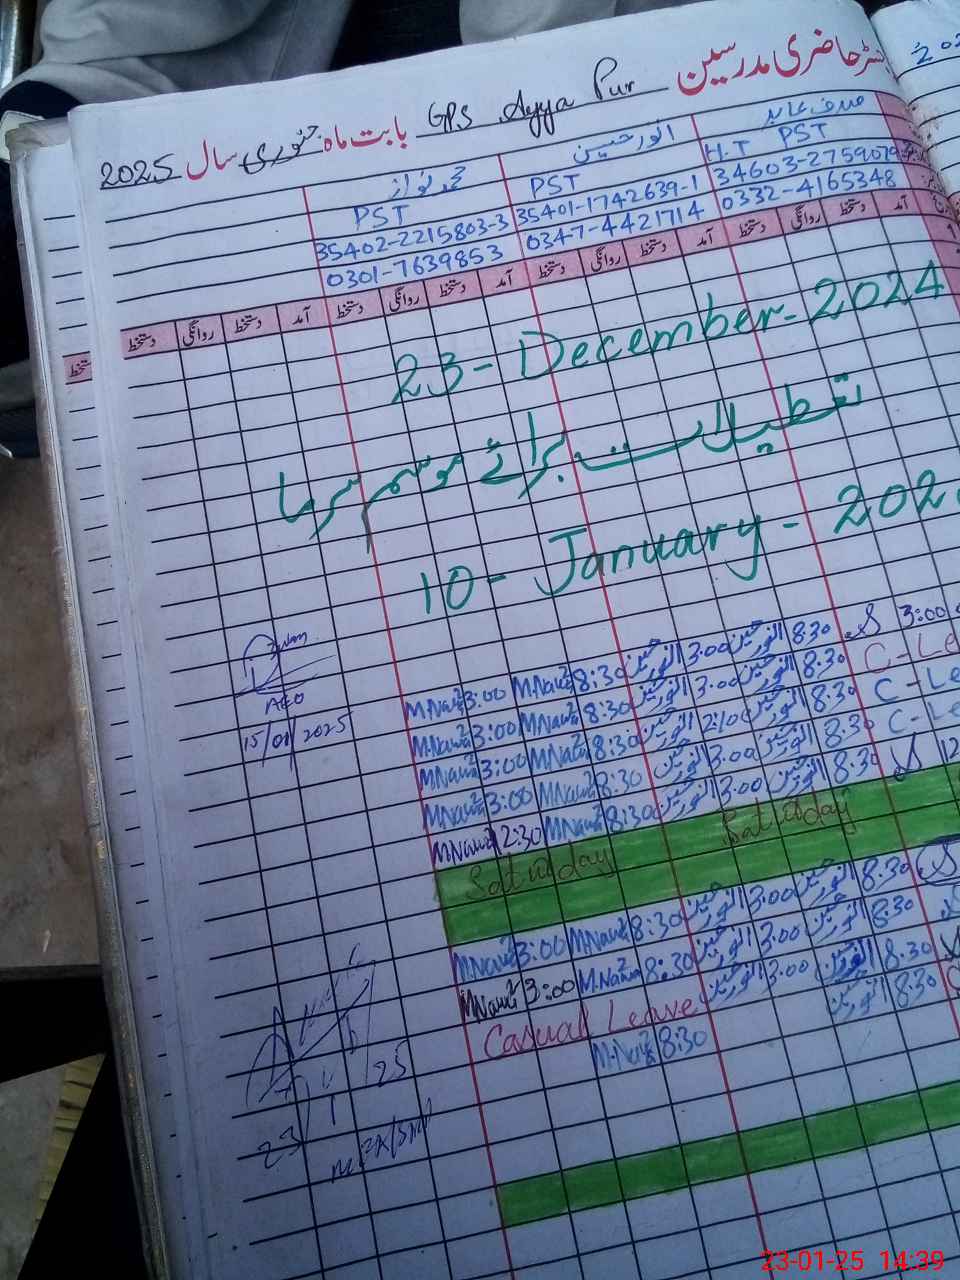 رجسٹر حاضری مدرسین GPS Ayya Pur بابت ماہ جنوری سال 2025
صدف عابد انور حسین محمد نواز
H.T PST PST PST
34603-2759079 35401-1742639-1 35402-2215803-3
0332-4165348 0347-4421714 0301-7639853
آمد دستخط روانگی دستخط آمد دستخط روانگی دستخط آمد دستخط روانگی دستخط آمد دستخط روانگی دستخط
23- December-2024
تعطیلات برائے موسم سرما
10- January - 202
3:00 8:30 انور حسین 3:00 انور حسین 8:30 M.Nawaz 3:00 M.Nawaz
C-Le 8:30 انور حسین 3:00 انور حسین 8:30 M.Nawaz 3:00 M.Nawaz
C-Le 8:30 انور حسین 2:10 انور حسین 8:30 M.Nawaz 3:00 M.Nawaz
C-Le 8:30 انور حسین 3:00 انور حسین 8:30 M.Nawaz 3:00 M.Nawaz
12 8:30 انور حسین 3:00 انور حسین 8:30 M.Nawaz 12:30 M.Nawaz
AEO
15/01/2025
Saturday Saturday
8:30 انور حسین 3:00 انور حسین 8:30 M.Nawaz 3:00 M.Nawaz
8:30 انور حسین 3:00 انور حسین 8:30 M.Nawaz 3:00 M.Nawaz
8:30 انور حسین 3:00 انور حسین Casual Leave
8:30 انور حسین 8:30 M.Nawaz
23/1/25
23-01-25 14:39